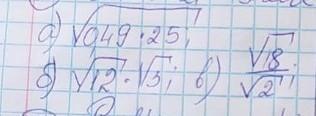 а) √(049 · 25;
б) √12 · √3; в) √18/√2;